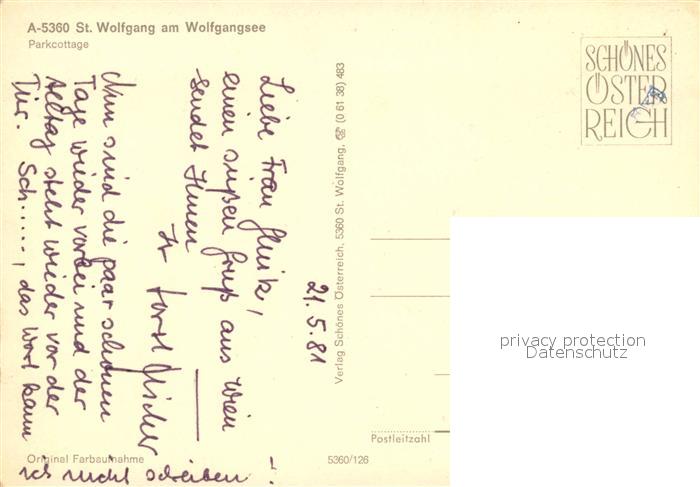 A-5360 St. Wolfgang am Wolfgangsee
Parkcottage
SCHÖNES
ÖSTER
REICH
21.5.81
Liebe Frau
einen süßen Gruß aus Wien
sendet Ihnen
Ihr Horst
Nun sind die paar schönen
Tage wieder vorbei und der
Alltag steht wieder vor der
Tür. Sch....., das Wort kann
ich nicht schreiben!
Verlag Schönes Österreich, 5360 St. Wolfgang, ☎ (0 61 38) 483
privacy protection
Datenschutz
Postleitzahl
Original Farbaufnahme
5360/126